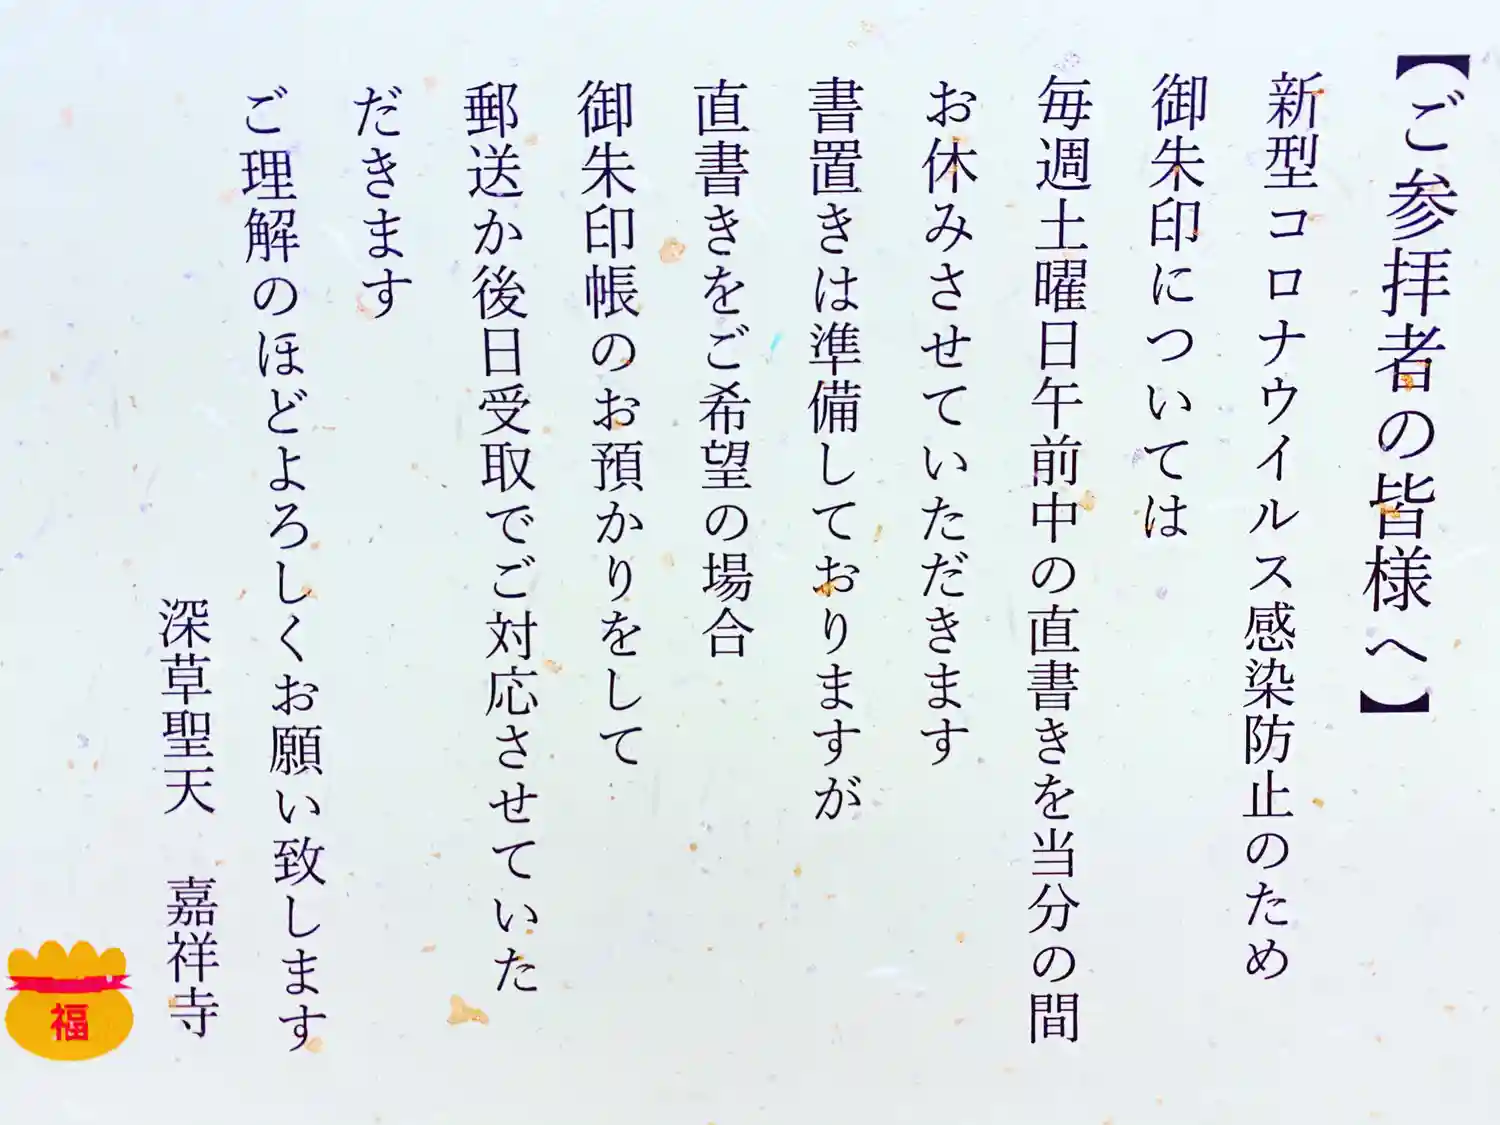 【ご参拝者の皆様へ】
新型コロナウイルス感染防止のため
御朱印については
毎週土曜日午前中の直書きを当分の間
お休みさせていただきます
書置きは準備しておりますが
直書きをご希望の場合
御朱印帳のお預かりをして
郵送か後日受取でご対応させていた
だきます
ご理解のほどよろしくお願い致します
深草聖天　嘉祥寺
福